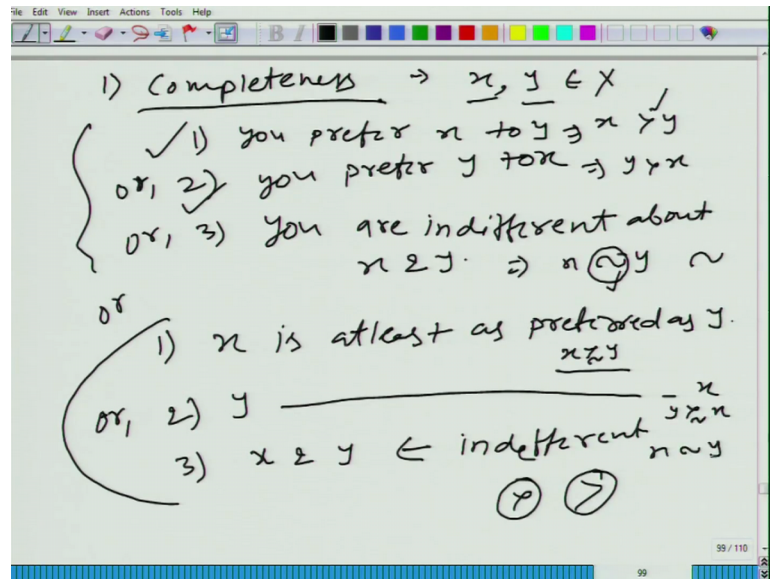 File Edit View Insert Actions Tools Help
1) Completeness → x, y ∈ X
1) you prefer x to y ⇒ x ≻ y
or, 2) you prefer y to x ⇒ y ≻ x
or, 3) you are indifferent about
x & y. ⇒ x ~ y ~
or
1) x is atleast as preferred as y.
x ≿ y
or, 2) y ——— x
y ≿ x
3) x & y ← indefferent x ~ y
≻ >
99 / 110
99